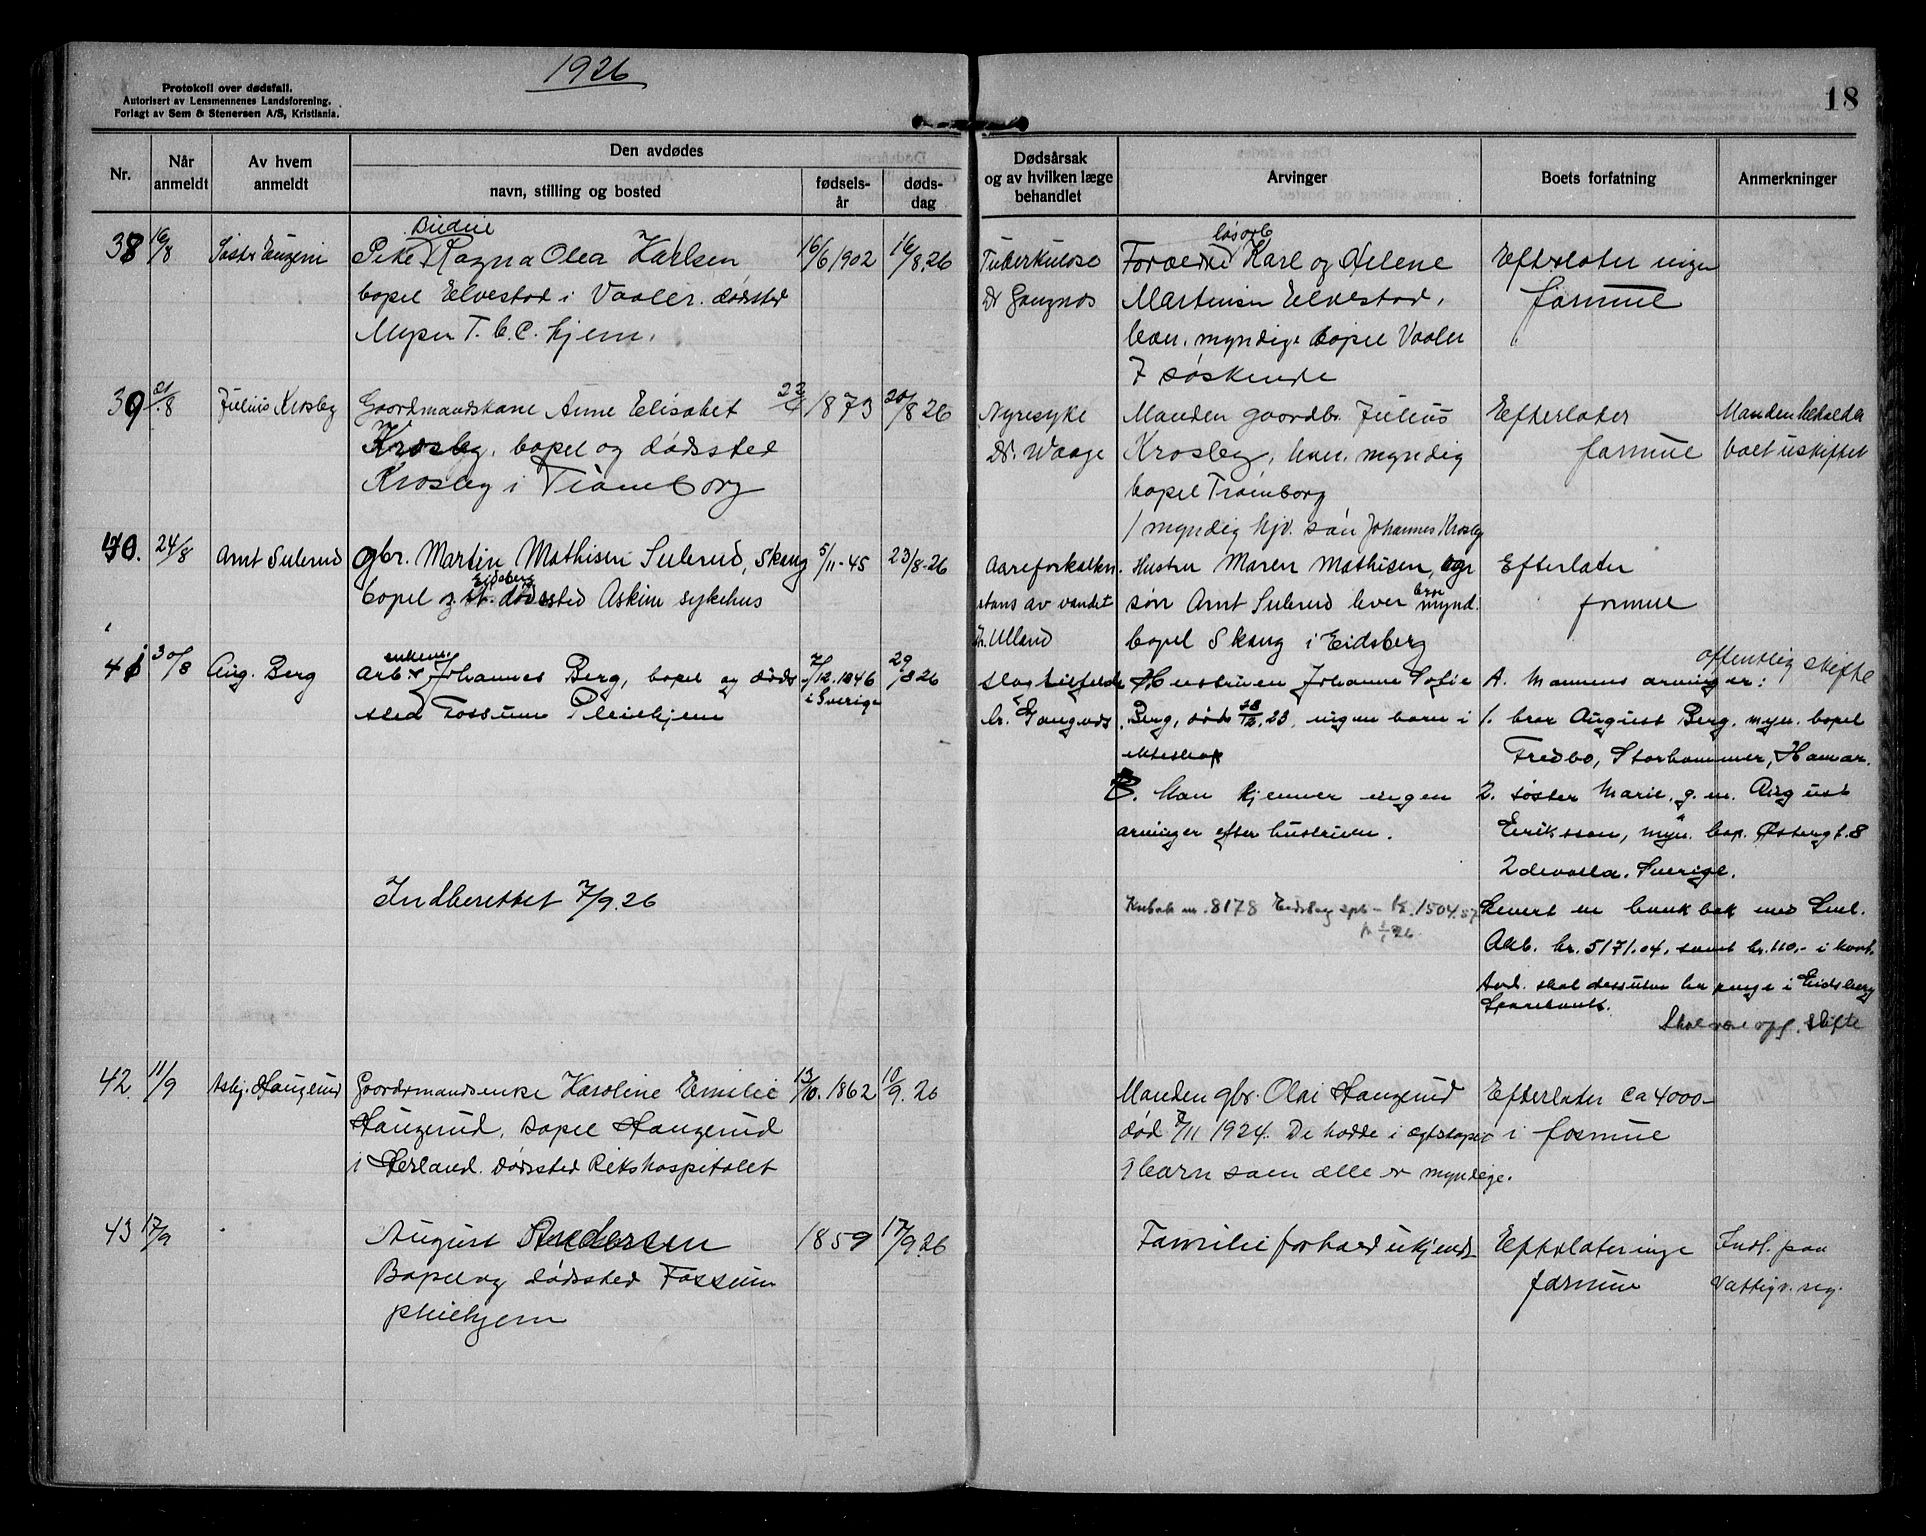 1926
18
Protokoll over dødsfall.
Autorisert av Lensmennenes Landsforening.
Forlagt av Sem & Stenersen A/S, Kristiania.
Nr.
Når anmeldt
Av hvem anmeldt
Den avdødes
navn, stilling og bosted
fødsels-år
døds-dag
Dødsårsak og av hvilken læge behandlet
Arvinger
Boets forfatning
Anmerkninger
38 16/8 Søster Eugeni
Budeie
Pike Ragna Olea Karlsen 16/6 1902 16/8.26
bopel Elvestad i Vaaler. dødssted
Mysen T.b.C. hjem.
Tuberkulose
Dr Gangnæs
løsarb
Foreldre Karl og Helene
Martinsen Elvestad,
bopel Vaaler
7 søskende
Efterlater ingen
formue
39 21/8 Julius Krosby
Gaardmandskone Anne Elisabet 22/4 1873 20/8 26
Krosby, bopel og dødssted
Krosby i Trømborg
Nyresyke
Dr. Waage
Manden gaardbr. Julius
Krosby, myndig
bopel Trømborg
1 myndig hjv. søn Johannes Krosby
Efterlater
formue
Manden beholder
boet uskiftet
40. 24/8 Arnt Sulerud
gbr. Martin Mathisen Sulerud, Skaug 5/11-45 23/8-26
Eidsberg
bopel dødssted Askim sykehus
Aareforkalkn.
stans av vandet
Dr. Ulland
Hustru Maren Mathisen, og
søn Arnt Sulerud lever mynd.
bopel Skaug i Eidsberg
Efterlater
formue
41 30/8 Aug. Berg
enkem.
Arb. Johannes Berg, bopel og døds 7/12.1846 29/8 26
sted Fossum Pleiehjem
i Sverige
Slagtilfelde
Dr. Gangnæs
Hustruen Johanne Sofie
Berg, død 12.23, ingen barn i
ekteskap
B. Man kjenner ingen
arvinger efter hustruen.
offentlig skifte
A. Mannens arvinger:
1. bror August Berg, myn. bopel
Fredbo, Storhammer, Hamar.
2. søster Marie, g. m. August
Eriksson, myn. bop. Østergt. 8
Udevalla. Sverige.
Indberettet 7/9.26
nr. 8178 Eidsberg spb - Kr. 1504.57
Levert en bankbok med Sml.
Akb. kr. 5171.04, samt kr. 110,- i kont.
Avd. skal dessuten ha penge i Eidsberg
Sparebank.
Skal være off. skifte
42. 11/9 Asbj. Haugerud
Gaardsmandsenke Karoline Emilie 13/10. 1862 10/9.26
Haugerud, bopel Haugerud
i Herland. Dødssted Rikshospitalet
Manden gbr. Olai Haugerud
død 7/11 1924. De hadde i egteskapet
9 barn som alle er myndige.
Efterlater ca 4000-
i formue
43 17/9
August Andersen 1859 17/9.26
Bopel og dødssted Fossum
pleiehjem
Familieforhold ukjendt
Efterlater inge
formue
Indl. paa
Vattigv. reg.